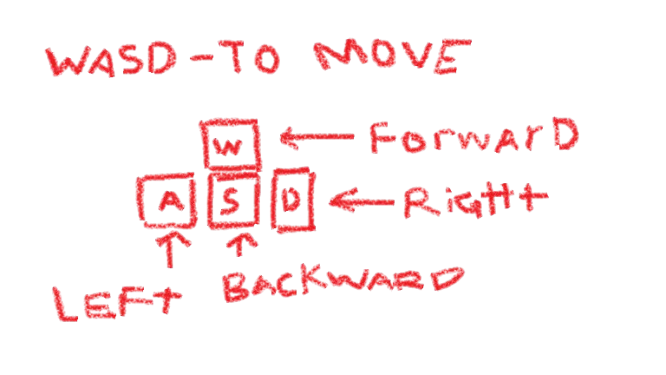 WASD-TO MOVE
W ← FORWARD
A S D ← RIGHT
LEFT BACKWARD